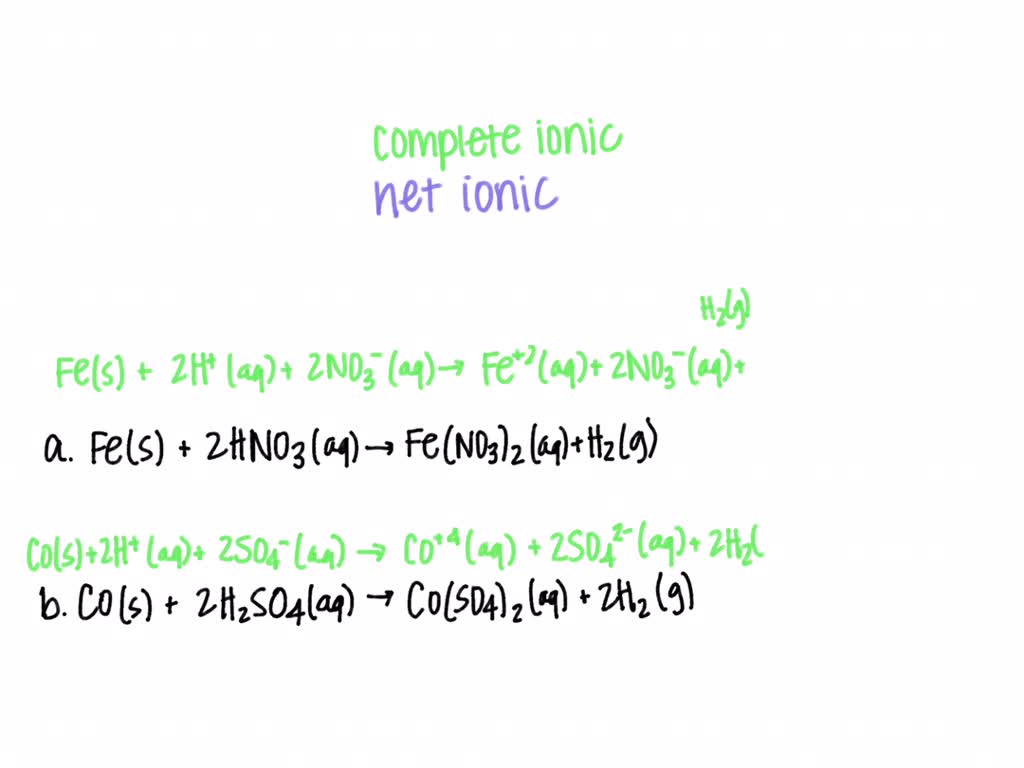 complete ionic
net ionic
H₂(g)
Fe(s) + 2H⁺(aq) + 2NO₃⁻(aq) → Fe⁺²(aq) + 2NO₃⁻(aq) +
a. Fe(s) + 2HNO₃(aq) → Fe(NO₃)₂(aq) + H₂(g)
Co(s) + 2H⁺(aq) + 2SO₄⁻(aq) → Co⁺⁴(aq) + 2SO₄²⁻(aq) + 2H₂(
b. Co(s) + 2H₂SO₄(aq) → Co(SO₄)₂(aq) + 2H₂(g)